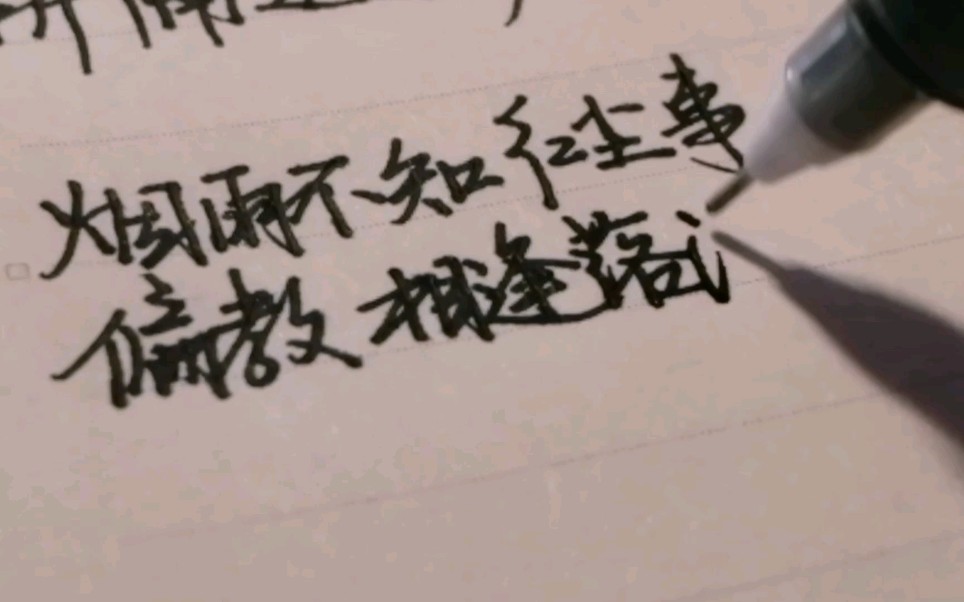 烟雨不知红尘事
偏教相逢落